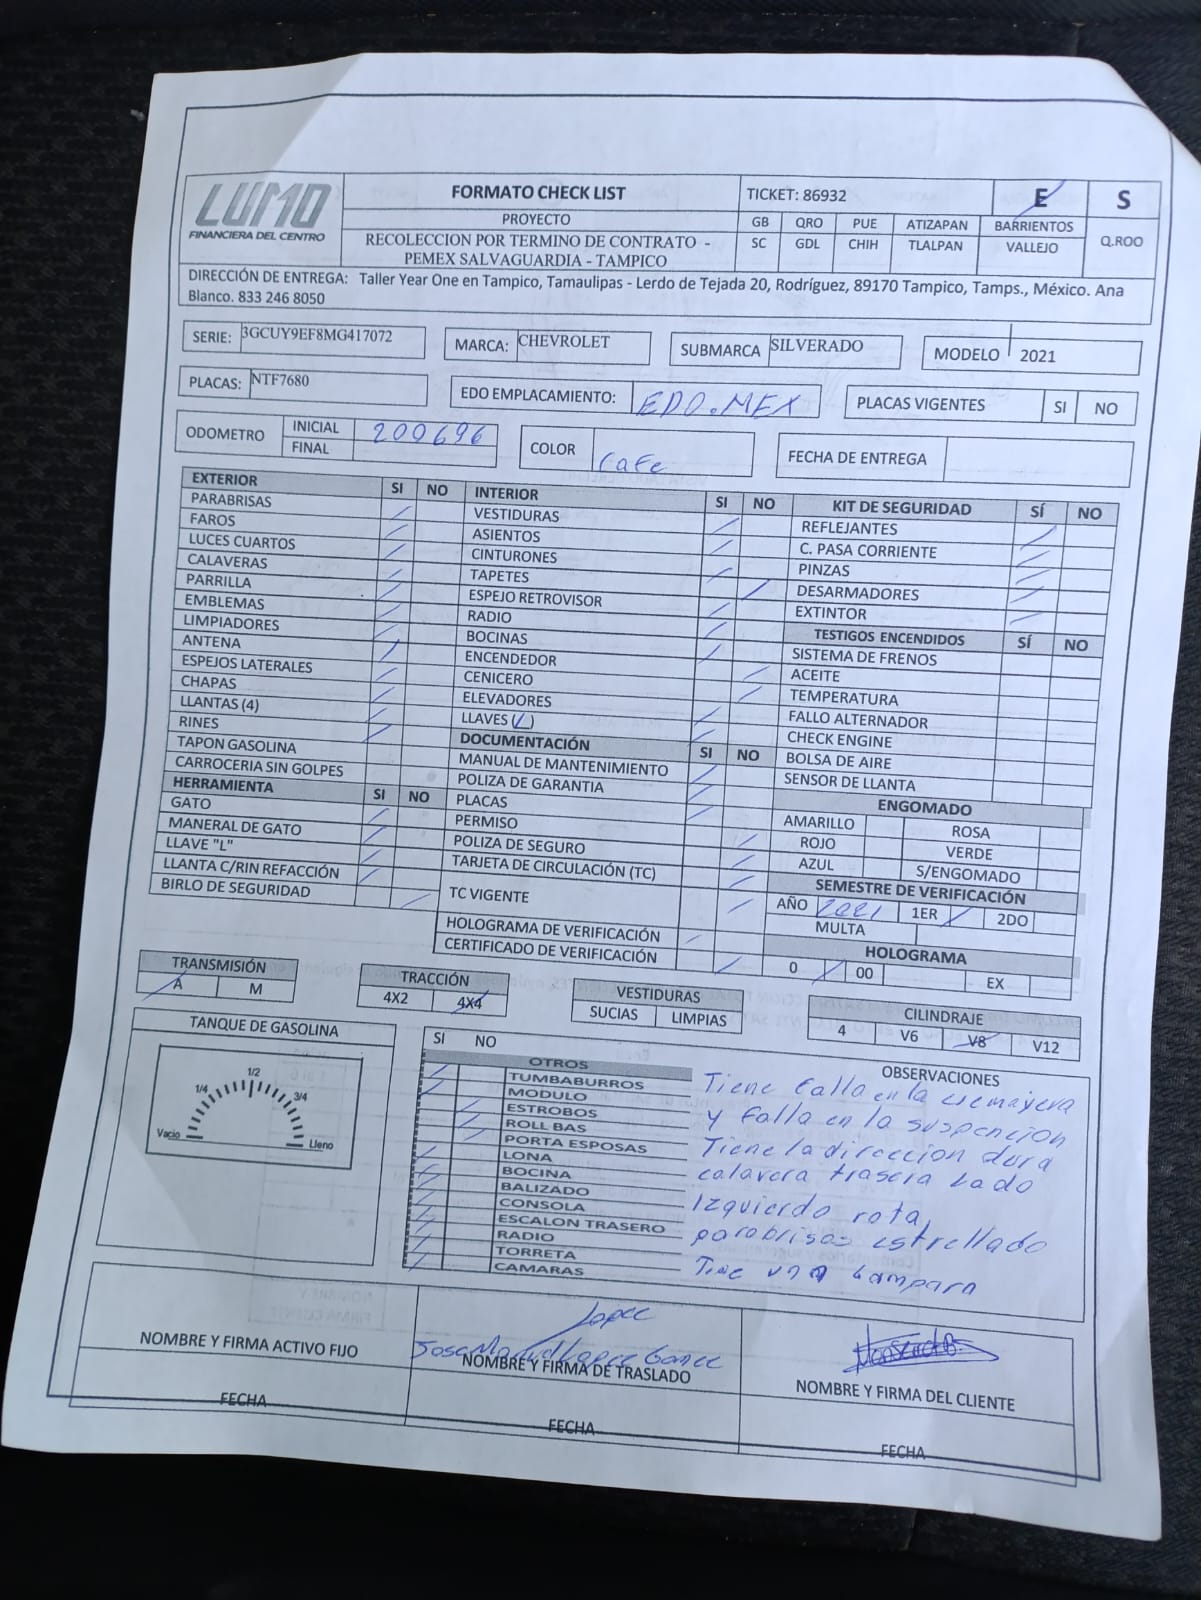 LUMO
FINANCIERA DEL CENTRO
FORMATO CHECK LIST
PROYECTO
RECOLECCION POR TERMINO DE CONTRATO -
PEMEX SALVAGUARDIA - TAMPICO
TICKET: 86932 E S
GB QRO PUE ATIZAPAN BARRIENTOS Q.ROO
SC GDL CHIH TLALPAN VALLEJO
DIRECCIÓN DE ENTREGA: Taller Year One en Tampico, Tamaulipas - Lerdo de Tejada 20, Rodríguez, 89170 Tampico, Tamps., México. Ana
Blanco. 833 246 8050
SERIE: 3GCUY9EF8MG417072 MARCA: CHEVROLET SUBMARCA SILVERADO MODELO 2021
PLACAS: NTF7680 EDO EMPLACAMIENTO: EDO.MEX PLACAS VIGENTES SI NO
ODOMETRO INICIAL 200696 COLOR Cafe FECHA DE ENTREGA
FINAL
EXTERIOR SI NO
PARABRISAS
FAROS
LUCES CUARTOS
CALAVERAS
PARRILLA
EMBLEMAS
LIMPIADORES
ANTENA
ESPEJOS LATERALES
CHAPAS
LLANTAS (4)
RINES
TAPON GASOLINA
CARROCERIA SIN GOLPES
HERRAMIENTA SI NO
GATO
MANERAL DE GATO
LLAVE "L"
LLANTA C/RIN REFACCIÓN
BIRLO DE SEGURIDAD
INTERIOR SI NO
VESTIDURAS
ASIENTOS
CINTURONES
TAPETES
ESPEJO RETROVISOR
RADIO
BOCINAS
ENCENDEDOR
CENICERO
ELEVADORES
LLAVES ( )
DOCUMENTACIÓN SI NO
MANUAL DE MANTENIMIENTO
POLIZA DE GARANTIA
PLACAS
PERMISO
POLIZA DE SEGURO
TARJETA DE CIRCULACIÓN (TC)
TC VIGENTE
HOLOGRAMA DE VERIFICACIÓN
CERTIFICADO DE VERIFICACIÓN
KIT DE SEGURIDAD SÍ NO
REFLEJANTES
C. PASA CORRIENTE
PINZAS
DESARMADORES
EXTINTOR
TESTIGOS ENCENDIDOS SÍ NO
SISTEMA DE FRENOS
ACEITE
TEMPERATURA
FALLO ALTERNADOR
CHECK ENGINE
BOLSA DE AIRE
SENSOR DE LLANTA
ENGOMADO
AMARILLO ROSA
ROJO VERDE
AZUL S/ENGOMADO
SEMESTRE DE VERIFICACIÓN
AÑO 2021 1ER 2DO
MULTA
HOLOGRAMA
0 00 EX
TRANSMISIÓN
A M
TRACCIÓN
4X2 4X4
VESTIDURAS
SUCIAS LIMPIAS
CILINDRAJE
4 V6 V8 V12
TANQUE DE GASOLINA
Vacio 1/4 1/2 3/4 Lleno
SI NO
OTROS
TUMBABURROS
MODULO
ESTROBOS
ROLL BAS
PORTA ESPOSAS
LONA
BOCINA
BALIZADO
CONSOLA
ESCALON TRASERO
RADIO
TORRETA
CAMARAS
OBSERVACIONES
Tiene falla en la cremayera
y falla en la suspencion
Tiene la direccion dura
calavera trasera lado
Izquierdo rota,
parabrisas estrellado
Tine una
NOMBRE Y FIRMA ACTIVO FIJO
FECHA
Lopez
Jose Manuel Lopez Gomez
NOMBRE Y FIRMA DE TRASLADO
FECHA
NOMBRE Y FIRMA DEL CLIENTE
FECHA